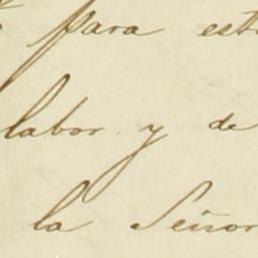 para est
labor y de
la Señor